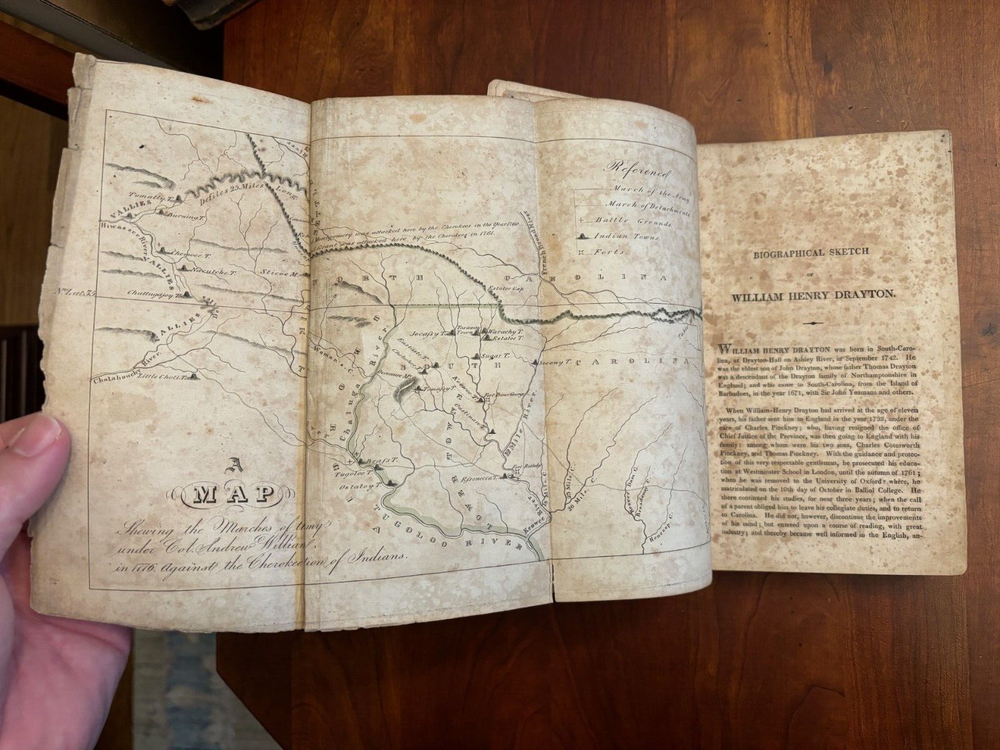 A
MAP
Shewing the Marches of
under Col. Andrew
in 1776. Against the of Indians.
Reference
March of the Army
March of Detachments
Battle Grounds
Indian Towns
Forts
Defiles 25 Miles Long
Tomatly T.
VALLIES
Burning T.
Hiwassee River
VALLIES
Nowcutche T.
Chattuggjoy T.
VALLIES
Chatahouchy River
Little Chote T.
Montgomery was attacked here by the Cherokees in the
attacked here by the Cherokees in 1761.
NORTH CAROLINA
Estatoe Gap
Jocassy T.
Warachy T.
Estatoe T.
Sugar T.
SOUTH CAROLINA
Tugoloo T.
Estatoy T.
Essenecca T.
TUGOLOO RIVER
Keowee River
12 Mile River
26 Mile C.
BIOGRAPHICAL SKETCH
OF
WILLIAM HENRY DRAYTON.
WILLIAM HENRY DRAYTON was born in South-Caro-
lina, at Drayton-Hall on Ashley River, in September 1742. He
was the eldest son of John Drayton, whose father Thomas Drayton
was a descendant of the Drayton family of Northamptonshire in
England; and who came to South-Carolina, from the Island of
Barbadoes, in the year 1671, with Sir John Yeomans and others.
When William-Henry Drayton had arrived at the age of eleven
years, his father sent him to England in the year 1753, under the
care of Charles Pinckney; who, having resigned the office of
Chief Justice of the Province, was then going to England with his
family: among whom were his two sons, Charles Cotesworth
Pinckney, and Thomas Pinckney. With the guidance and protec-
tion of this very respectable gentleman, he prosecuted his educa-
tion at Westminster School in London, until the autumn of 1761;
when he was removed to the University of Oxford: where, he
matriculated on the 10th day of October in Balliol College. He
there continued his studies, for near three years; when the call
of a parent obliged him to leave his collegiate duties, and to return
to Carolina. He did not, however, discontinue the improvements
of his mind; but entered upon a course of reading, with great
industry; and thereby became well informed in the English, an-